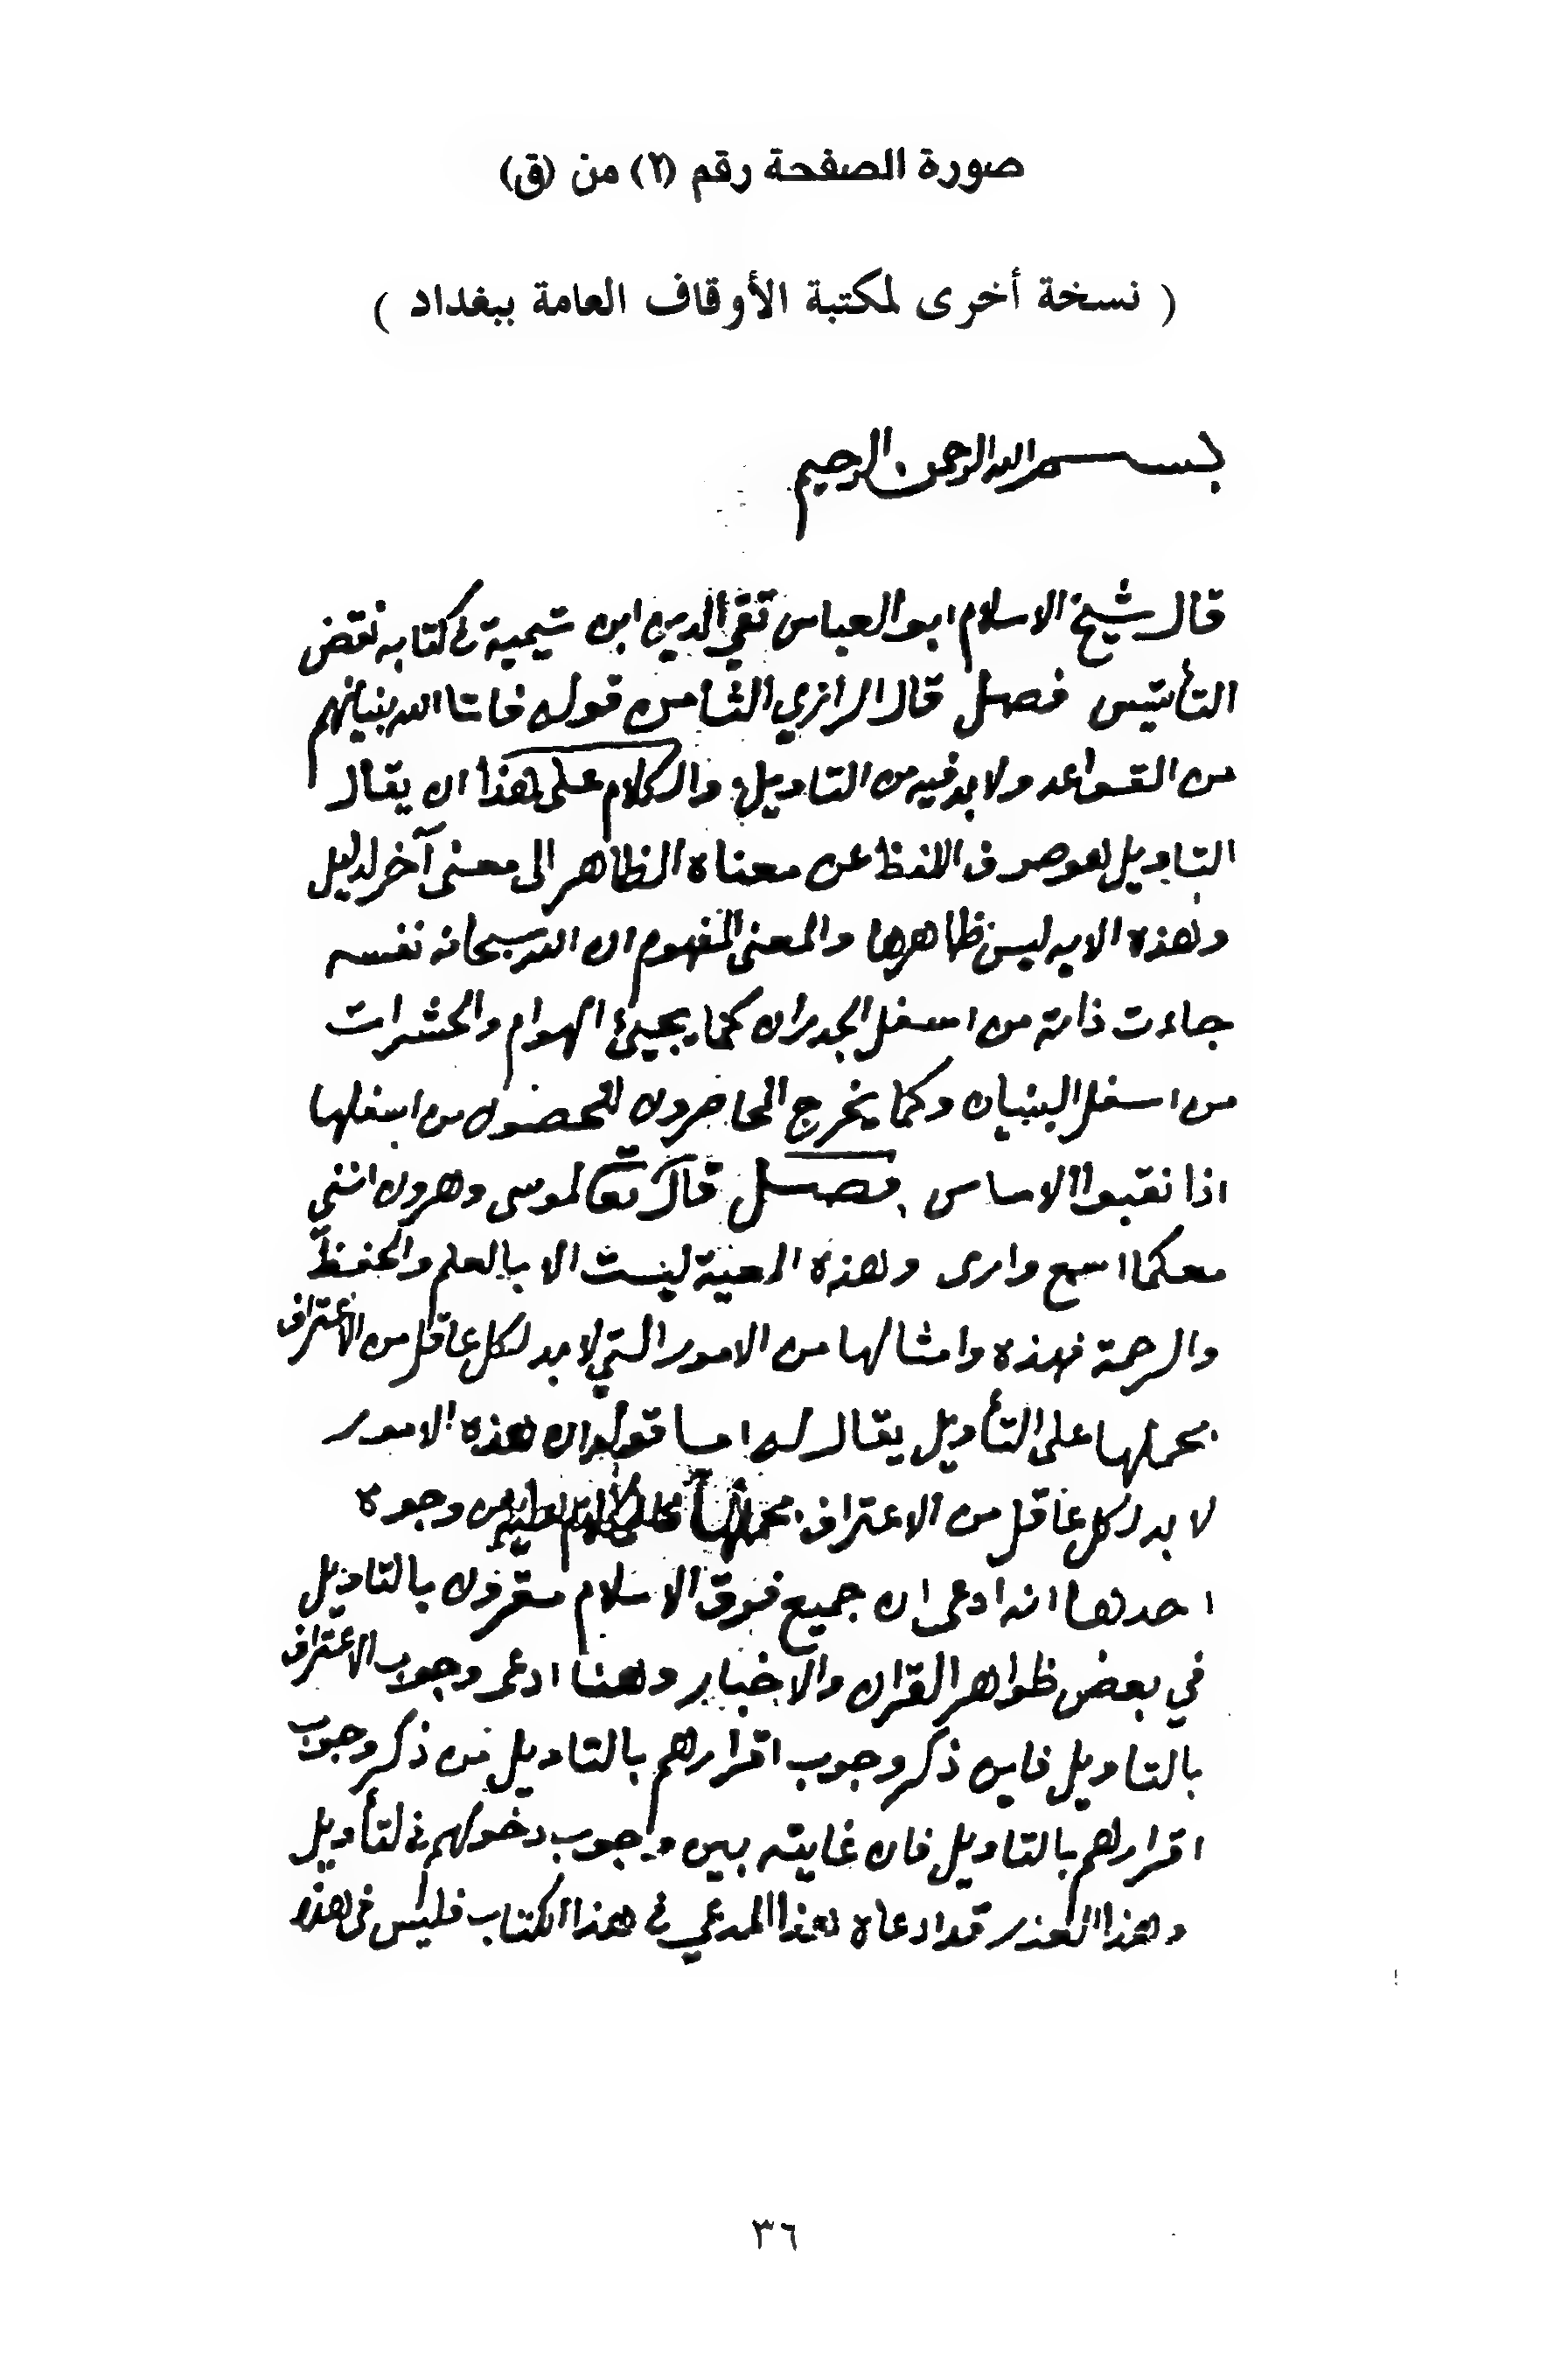 صورة الصفحة رقم (٢) من (ق)
( نسخة أخرى لمكتبة الأوقاف العامة ببغداد )
بسم الله الرحمن الرحيم
قال شيخ الاسلام ابو العباس تقي الدين ابن تيمية في كتابه نقض
التأسيس فصل قال الرازي الثامن قوله فاتا الله بنيانهم
من القواعد ولا بد فيه من التاويل والكلام على هذا ان يقال
التاويل هو صرف اللفظ عن معناه الظاهر الى معنى آخر لدليل
وهذه الايه ليس ظاهرها والمعنى المفهوم ان الله سبحانه نفسه
جاءت ذاته من اسفل الجدران كما يجيئ الهوام والحشرات
من اسفل البنيان وكما يخرج المحاصرون للحصون من اسفلها
اذا نقبوا الاساس فصل قال تعا لموسى وهرون انني
معكما اسمع وارى وهذه المعية ليست الا بالعلم والحفظ
والرحمة فهذه وامثالها من الامور التي لا بد لكل عاقل من الاعتراف
بحملها على التأويل يقال له اما قوله ان هذه الامور
لا بد لكل عاقل من الاعتراف بحملها من وجوه
احدها انه ادعى ان جميع فرق الاسلام مقرون بالتاويل
في بعض ظواهر القران والاخبار وهنا ادعى وجوب الاعتراف
بالتاويل فاين ذكر وجوب اقرارهم بالتاويل من ذكر وجوب
اقرارهم بالتاويل فان غايته بين وجوب دخولهم في لتأويل
وهذا العذر قد ادعاه هذا المدعي في هذا الكتاب فليس في هذه
٣٦